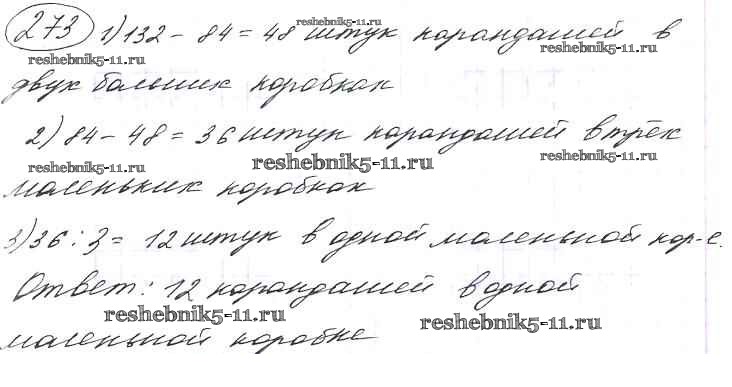 273 1) 132 - 84 = 48 штук карандашей в
reshebnik5-11.ru
reshebnik5-11.ru reshebnik5-11.ru
двух больших коробках
2) 84 - 48 = 36 штук карандашей в трёх
reshebnik5-11.ru reshebnik5-11.ru reshebnik5-11.ru
маленьких коробках
3) 36 : 3 = 12 штук в одной маленькой кор-е.
Ответ: 12 карандашей в одной
reshebnik5-11.ru reshebnik5-11.ru
маленькой коробке